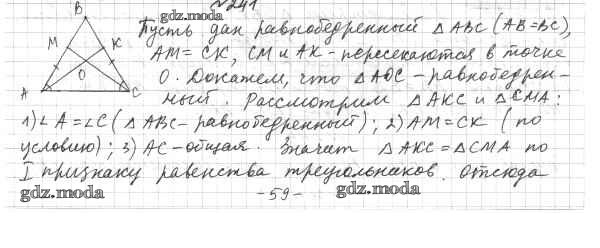 №241
gdz.moda
Пусть дан равнобедренный △ABC (AB=BC),
AM=CK, CM и AK - пересекаются в точке
O. Докажем, что △AOC - равнобедрен-
ный. Рассмотрим △AKC и △CMA:
1) ∠A=∠C (△ABC - равнобедренный); 2) AM=CK (по
условию); 3) AC - общая. Значит △AKC=△CMA по
I признаку равенства треугольников. Отсюда
gdz.moda
- 59 -
gdz.moda
B
M
K
O
A
C